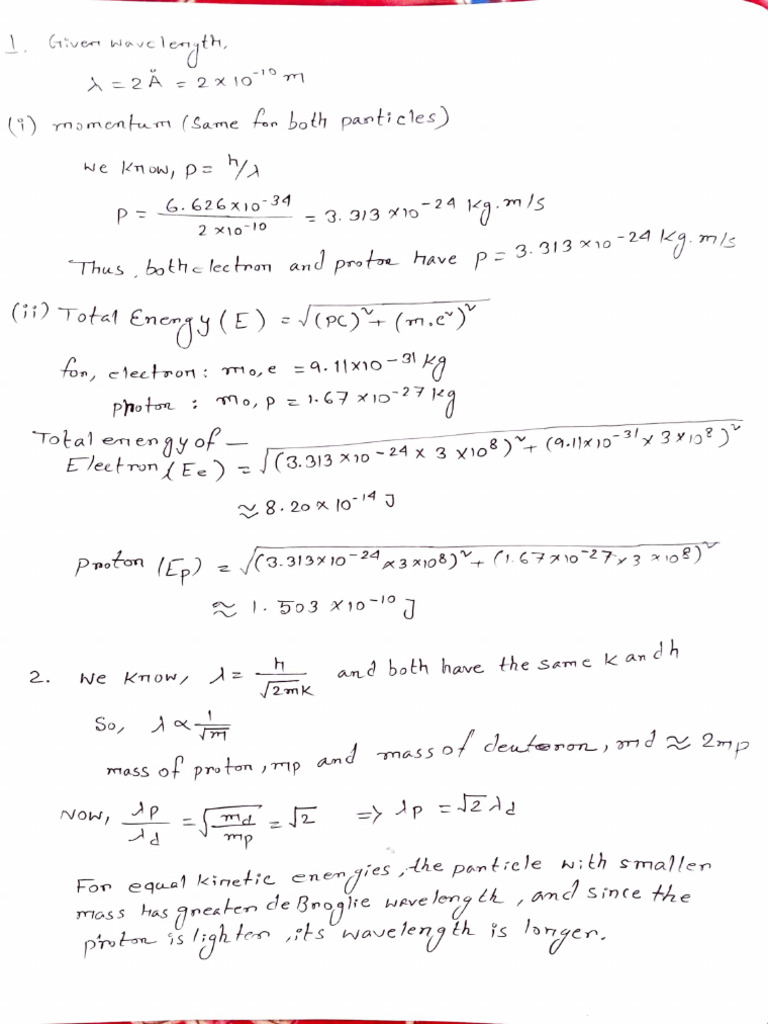 1. Given wavelength,
λ = 2 Å = 2 × 10⁻¹⁰ m
(i) momentum (same for both particles)
We know, p = h/λ
P = 6.626×10⁻³⁴ / 2×10⁻¹⁰ = 3.313 ×10⁻²⁴ kg.m/s
Thus, both electron and proton have p = 3.313 × 10⁻²⁴ kg. m/s
(ii) Total Energy (E) = √(PC)² + (m.c²)²
for, electron : mo,e = 9.11×10⁻³¹ kg
photon : mo, p = 1.67 ×10⁻²⁷ kg
Total energy of —
Electron (Ee) = √(3.313 ×10⁻²⁴ × 3 ×10⁸)² + (9.11×10⁻³¹ × 3×10⁸)²
≈ 8.20 × 10⁻¹⁴ J
Proton (Ep) = √(3.313×10⁻²⁴ ×3×10⁸)² + (1.67×10⁻²⁷ × 3 ×10⁸)²
≈ 1.503 ×10⁻¹⁰ J
2. We know, λ = h / √2mk and both have the same k and h
So, λ ∝ 1/√m
mass of proton, mp and mass of deuteron, md ≈ 2mp
Now, λp/λd = √md/mp = √2 ⇒ λp = √2 λd
For equal kinetic energies, the particle with smaller
mass has greater de Broglie wavelength, and since the
proton is lighter, its wavelength is longer.